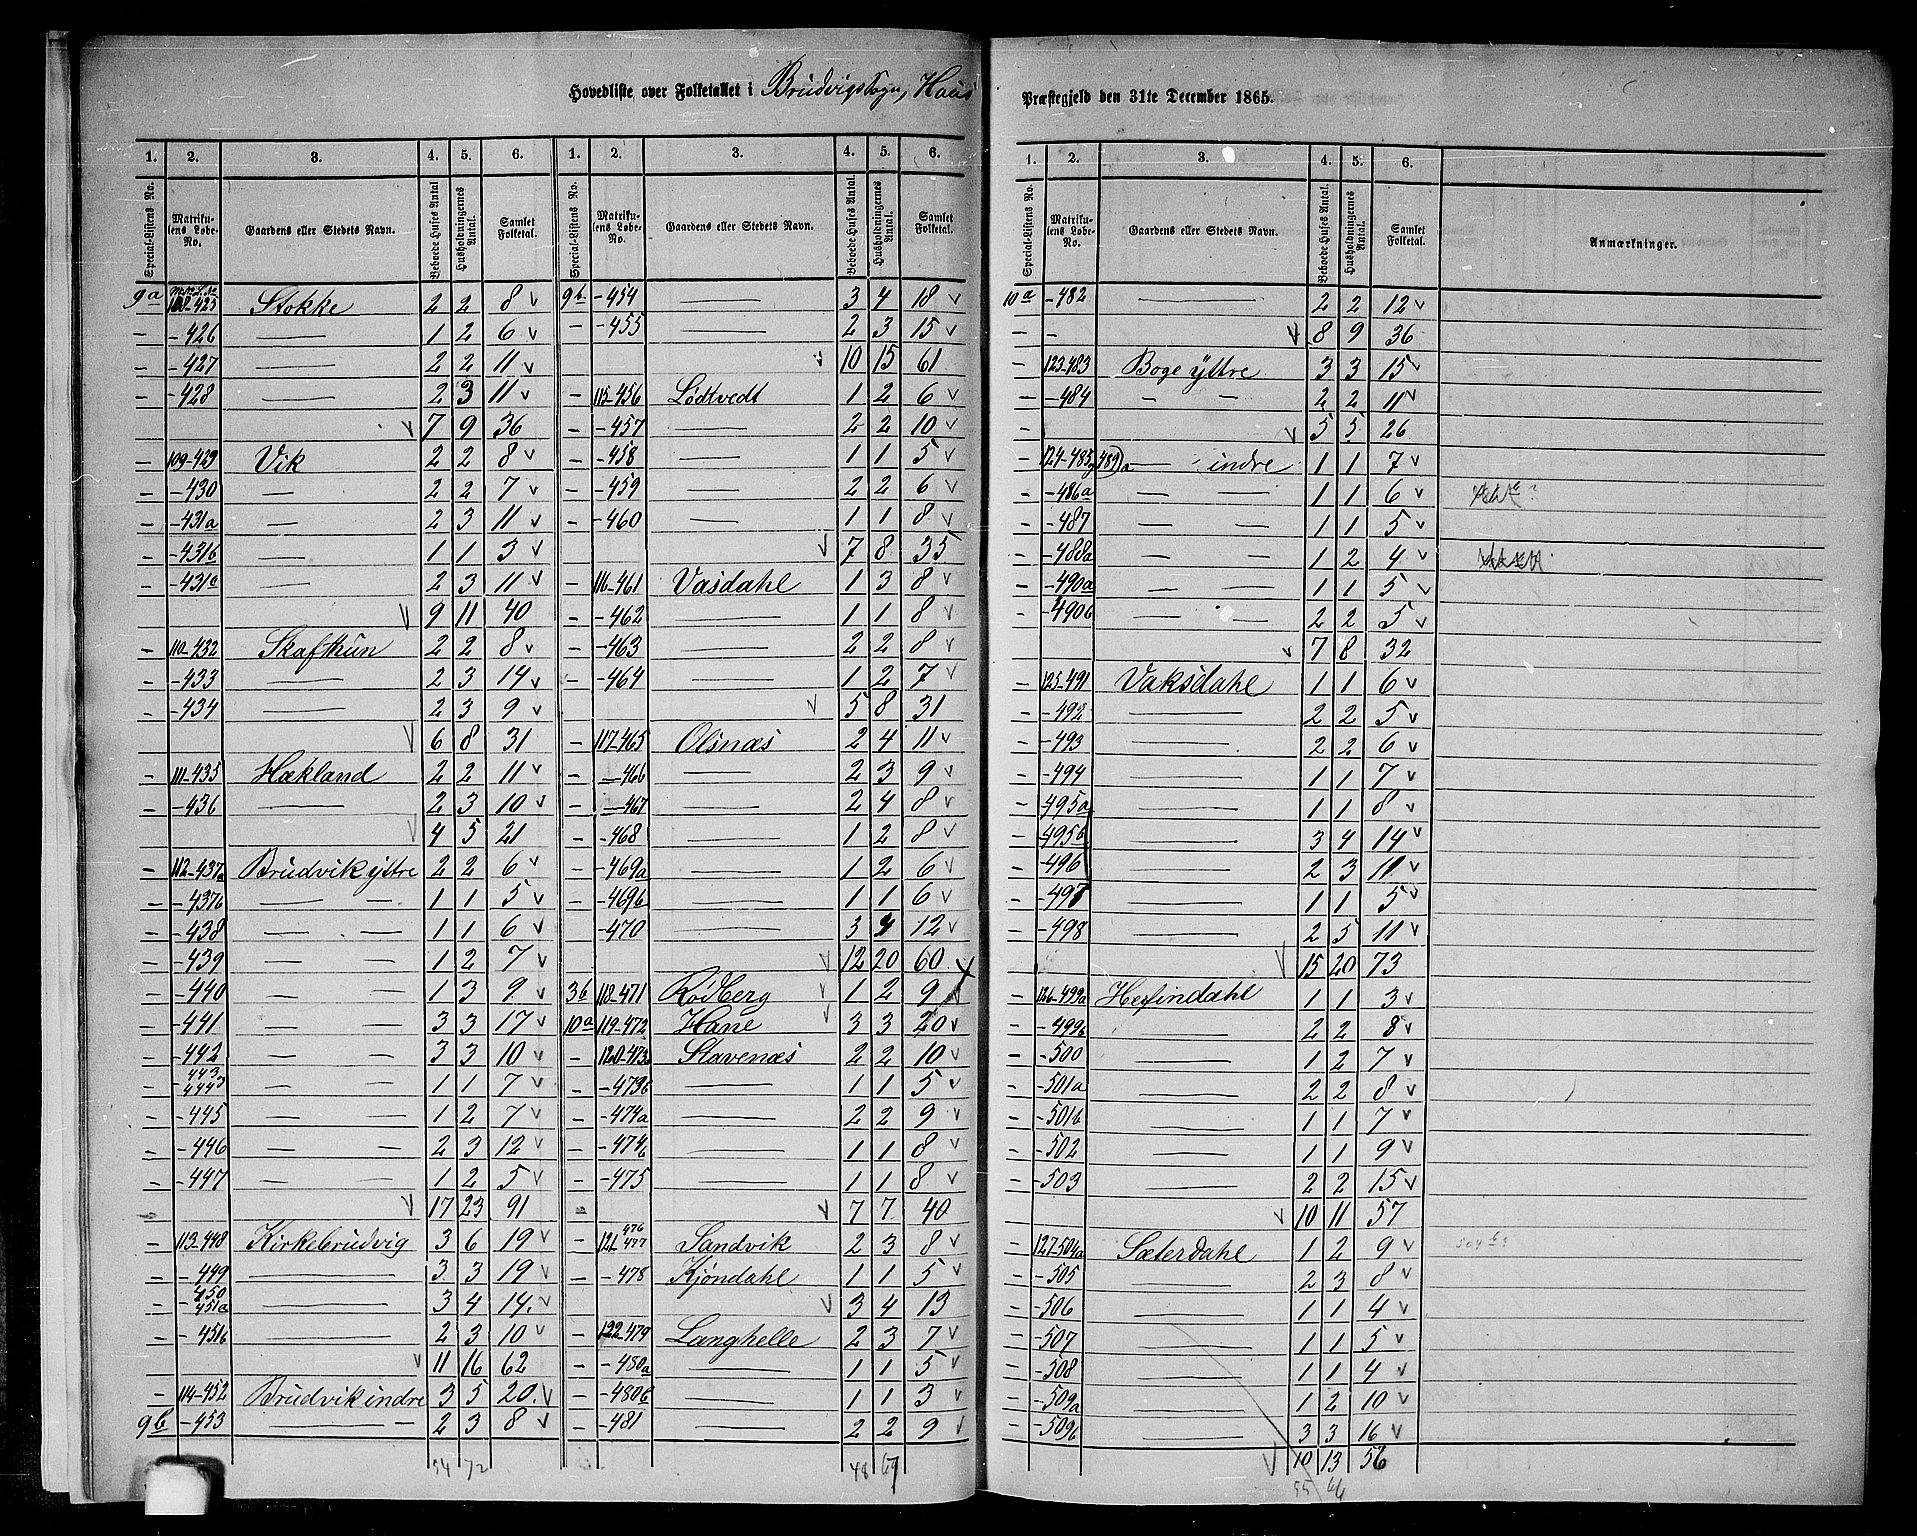 Hovedliste over Folketallet i Brudvigs Sogn, Haus Præstegjeld den 31te December 1865.
1. 2. 3. 4. 5. 6. 1. 2. 3. 4. 5. 6. 1. 2. 3. 4. 5. 6.
Special-Listens No. Matrikulens Løbe-No. Gaardens eller Stedets Navn. Beboede Huses Antal Husholdningernes Antal. Samlet Folketal. Special-Listens No. Matrikulens Løbe-No. Gaardens eller Stedets Navn. Beboede Huses Antal. Husholdningernes Antal. Samlet Folketal. Special-Listens No. Matrikulens Løbe-No. Gaardens eller Stedets Navn. Beboede Huses Antal. Husholdningernes Antal. Samlet Folketal. Anmærkninger.
9a M.No. L.No. 108-425 Stokke 2 2 8 v
- -426 — 1 2 6 v
- -427 — 2 2 11 v
- -428 — 2 3 11 v
v 7 9 36
- 109-429 Vik 2 2 8 v
- -430 — 2 2 7 v
- -431a — 2 3 11 v
- -431b — 1 1 3 v
- -431c — 2 3 11 v
v 9 11 40
- 110-432 Skafthun 2 2 8 v
- -433 — 2 3 14 v
- -434 — 2 3 9 v
v 6 8 31
- 111-435 Hækland 2 2 11 v
- -436 — 2 3 10 v
v 4 5 21
- 112-437a Brudvik yttre 2 2 6 v
- -437b — — 1 1 5 v
- -438 — — 1 1 6 v
- -439 — — 1 2 7 v
- -440 — — 1 3 9 v
- -441 — — 3 3 17 v
- -442 — — 3 3 10 v
- -443 444 — — 1 1 7 v
- -445 — — 1 2 7 v
- -446 — — 2 3 12 v
- -447 — — 1 2 5 v
v 17 23 91
- 113-448 Kirkebrudvig 3 6 19 v
- -449 — 3 3 19 v
- -450 451a — 3 4 14 v
- -451b — 2 3 10 v
v 11 16 62
- 114-452 Brudvik indre 3 5 20 v
9b -453 — — 2 3 8 v
54 72
9b -454 — 3 4 18 v
- -455 — 2 3 15 v
v 10 15 61
- 115-456 Lødtvedt 1 2 6 v
- -457 — 2 2 10 v
- -458 — 1 1 5 v
- -459 — 2 2 6 v
- -460 — 1 1 8 v
v 7 8 35
- 116-461 Vasdahl 1 3 8 v
- -462 — 1 1 8 v
- -463 — 2 2 8 v
- -464 — 1 2 7 v
v 5 8 31
- 117-465 Olsnæs 2 4 11 v
- -466 — 2 3 9 v
- -467 — 2 4 8 v
- -468 — 1 2 8 v
- -469a — 1 2 6 v
- -469b — 1 1 6 v
-470 — 3 4 12 v
v 12 20 60
3b 118-471 Rødberg v 1 2 9 v
10a 119-472 Hane v 3 3 20 v
- 120-473a Stavenæs 2 2 10 v
- -473b — 1 1 5 v
- -474a — 2 2 9 v
- -474b — 1 1 8 v
- -475 — 1 1 8 v
v 7 7 40
- 121-476 477 Sandvik 2 3 8 v
- -478 Kjøndahl 1 1 5 v
v 3 4 13
- 122-479 Langhelle 2 3 7 v
- -480a — 1 1 5 v
- -480b — 1 1 3 v
- -481 — 2 2 9 v
48 67
10a -482 — 2 2 12 v
- - v 8 9 36
- 123-483 Boge yttre 3 3 15 v
- -484 — — 2 2 11 v
v 5 5 26
- 124-485, 489a — indre 1 1 7 v
- -486a — — 1 1 6 v
- -487 — — 1 1 5 v
- -488a — — 1 2 4 v
- -490a — — 1 1 5 v
- -490b — — 2 2 5 v
v 7 8 32
- 125-491 Vaksdahl 1 1 6 v
- -492 — 2 2 5 v
- -493 — 2 2 6 v
- -494 — 1 1 7 v
- -495a — 1 1 8 v
- -495b — 3 4 14 v
- -496 — 2 3 11 v
- -497 — 1 1 5 v
- -498 — 2 5 11 v
v 15 20 73
- 126-499a Hesjindahl 1 1 3 v
- -499b — 2 2 8 v
- -500 — 1 2 7 v
- -501a — 2 2 8 v
- -501b — 1 1 7 v
- -502 — 1 1 9 v
- -503 — 2 2 15 v
v 10 11 57
- 127-504a Sæterdahl 1 2 9 v 504 b?
- -505 — 2 3 8 v
- -506 — 1 1 4 v
- -507 — 1 1 5 v
- -508 — 1 1 4 v
- -509a — 1 2 10 v
- -509b — 3 3 16 v
v 10 13 56
55 66